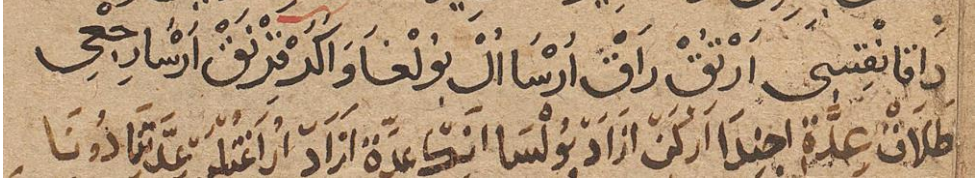 دَاقا نْفِقسِى اَرْتُقْ رَاقْ اَرْسَا اُلْ بُولْغَا وَ اَكَرْ قِرْنَقْ اَرْسَا رِجْعِى
طَلَاقْ عِدَّةِ اجِندَا اَركَنْ اَزَادْ بُولْسَا انِكْ عدّة اَزَادْ اُرَاغَتْلَرْ